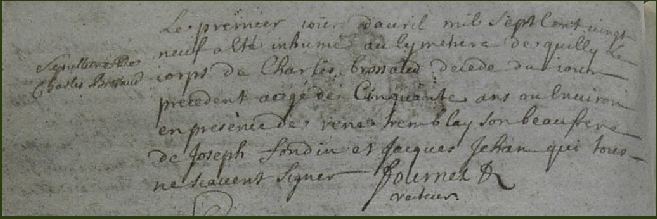 Le premier jour d'avril mil sept cent vingt
neuf a été inhumé au cymetiere de
Sepulture de
Charles
corps de Charles decede du jour
precedent aagé de Cinquante ans ou Environ
en presence de rene tremblay son beaufrere
de Joseph fondin et Jacques Jehan qui tous
ne scavent signer fournier
recteur